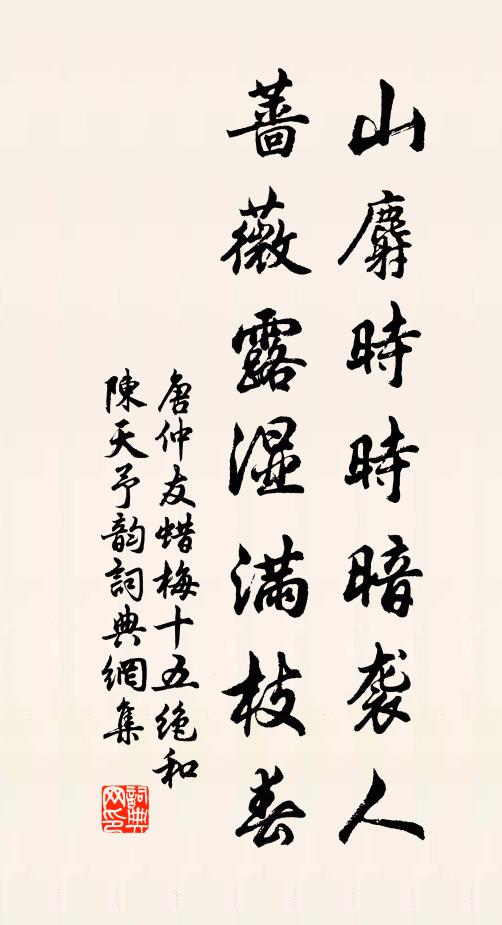 山麝時時暗袭人
蔷薇露湿满枝春
唐仲友蜡梅十五绝和
陳天予韵詞典網集
詞典
网印